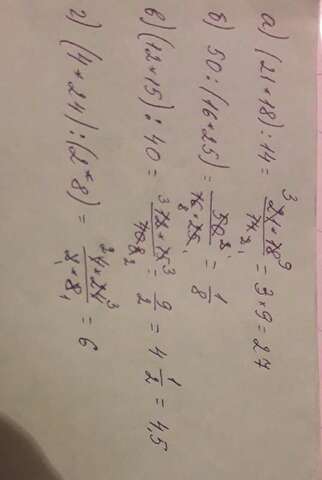 а) (21*18):14= ³21*18⁹/14₂₁ = 3*9=27
б) 50:(16*25) = 50²¹/₈16*25₁ = 1/8
в) (12*15):40 = ³12*15³/40 8 2 = 9/2 = 4 1/2 = 4,5
г) (4*24):(2*8) = ²4*24³/2₁*8₁ = 6